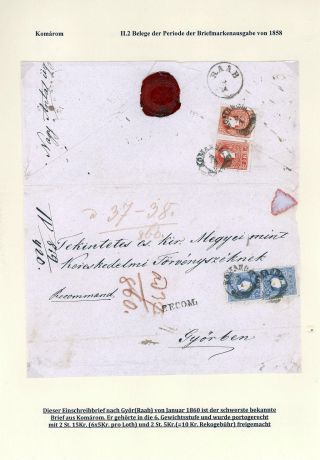 Komárom
II.2 Belege der Periode der Briefmarkenausgabe von 1858
RAAB
37-38.
Tekintetes cs. Kir. Megyei mint
Kereskedelmi Törvényszéknek
Recommand.
RECOM.
Győrben
860.
Dieser Einschreibbrief nach Győr(Raab) von Januar 1860 ist der schwerste bekannte
Brief aus Komárom. Er gehörte in die 6. Gewichtsstufe und wurde portogerecht
mit 2 St. 15Kr. (6x5Kr. pro Loth) und 2 St. 5Kr.(=10 Kr. Rekogebühr) freigemacht